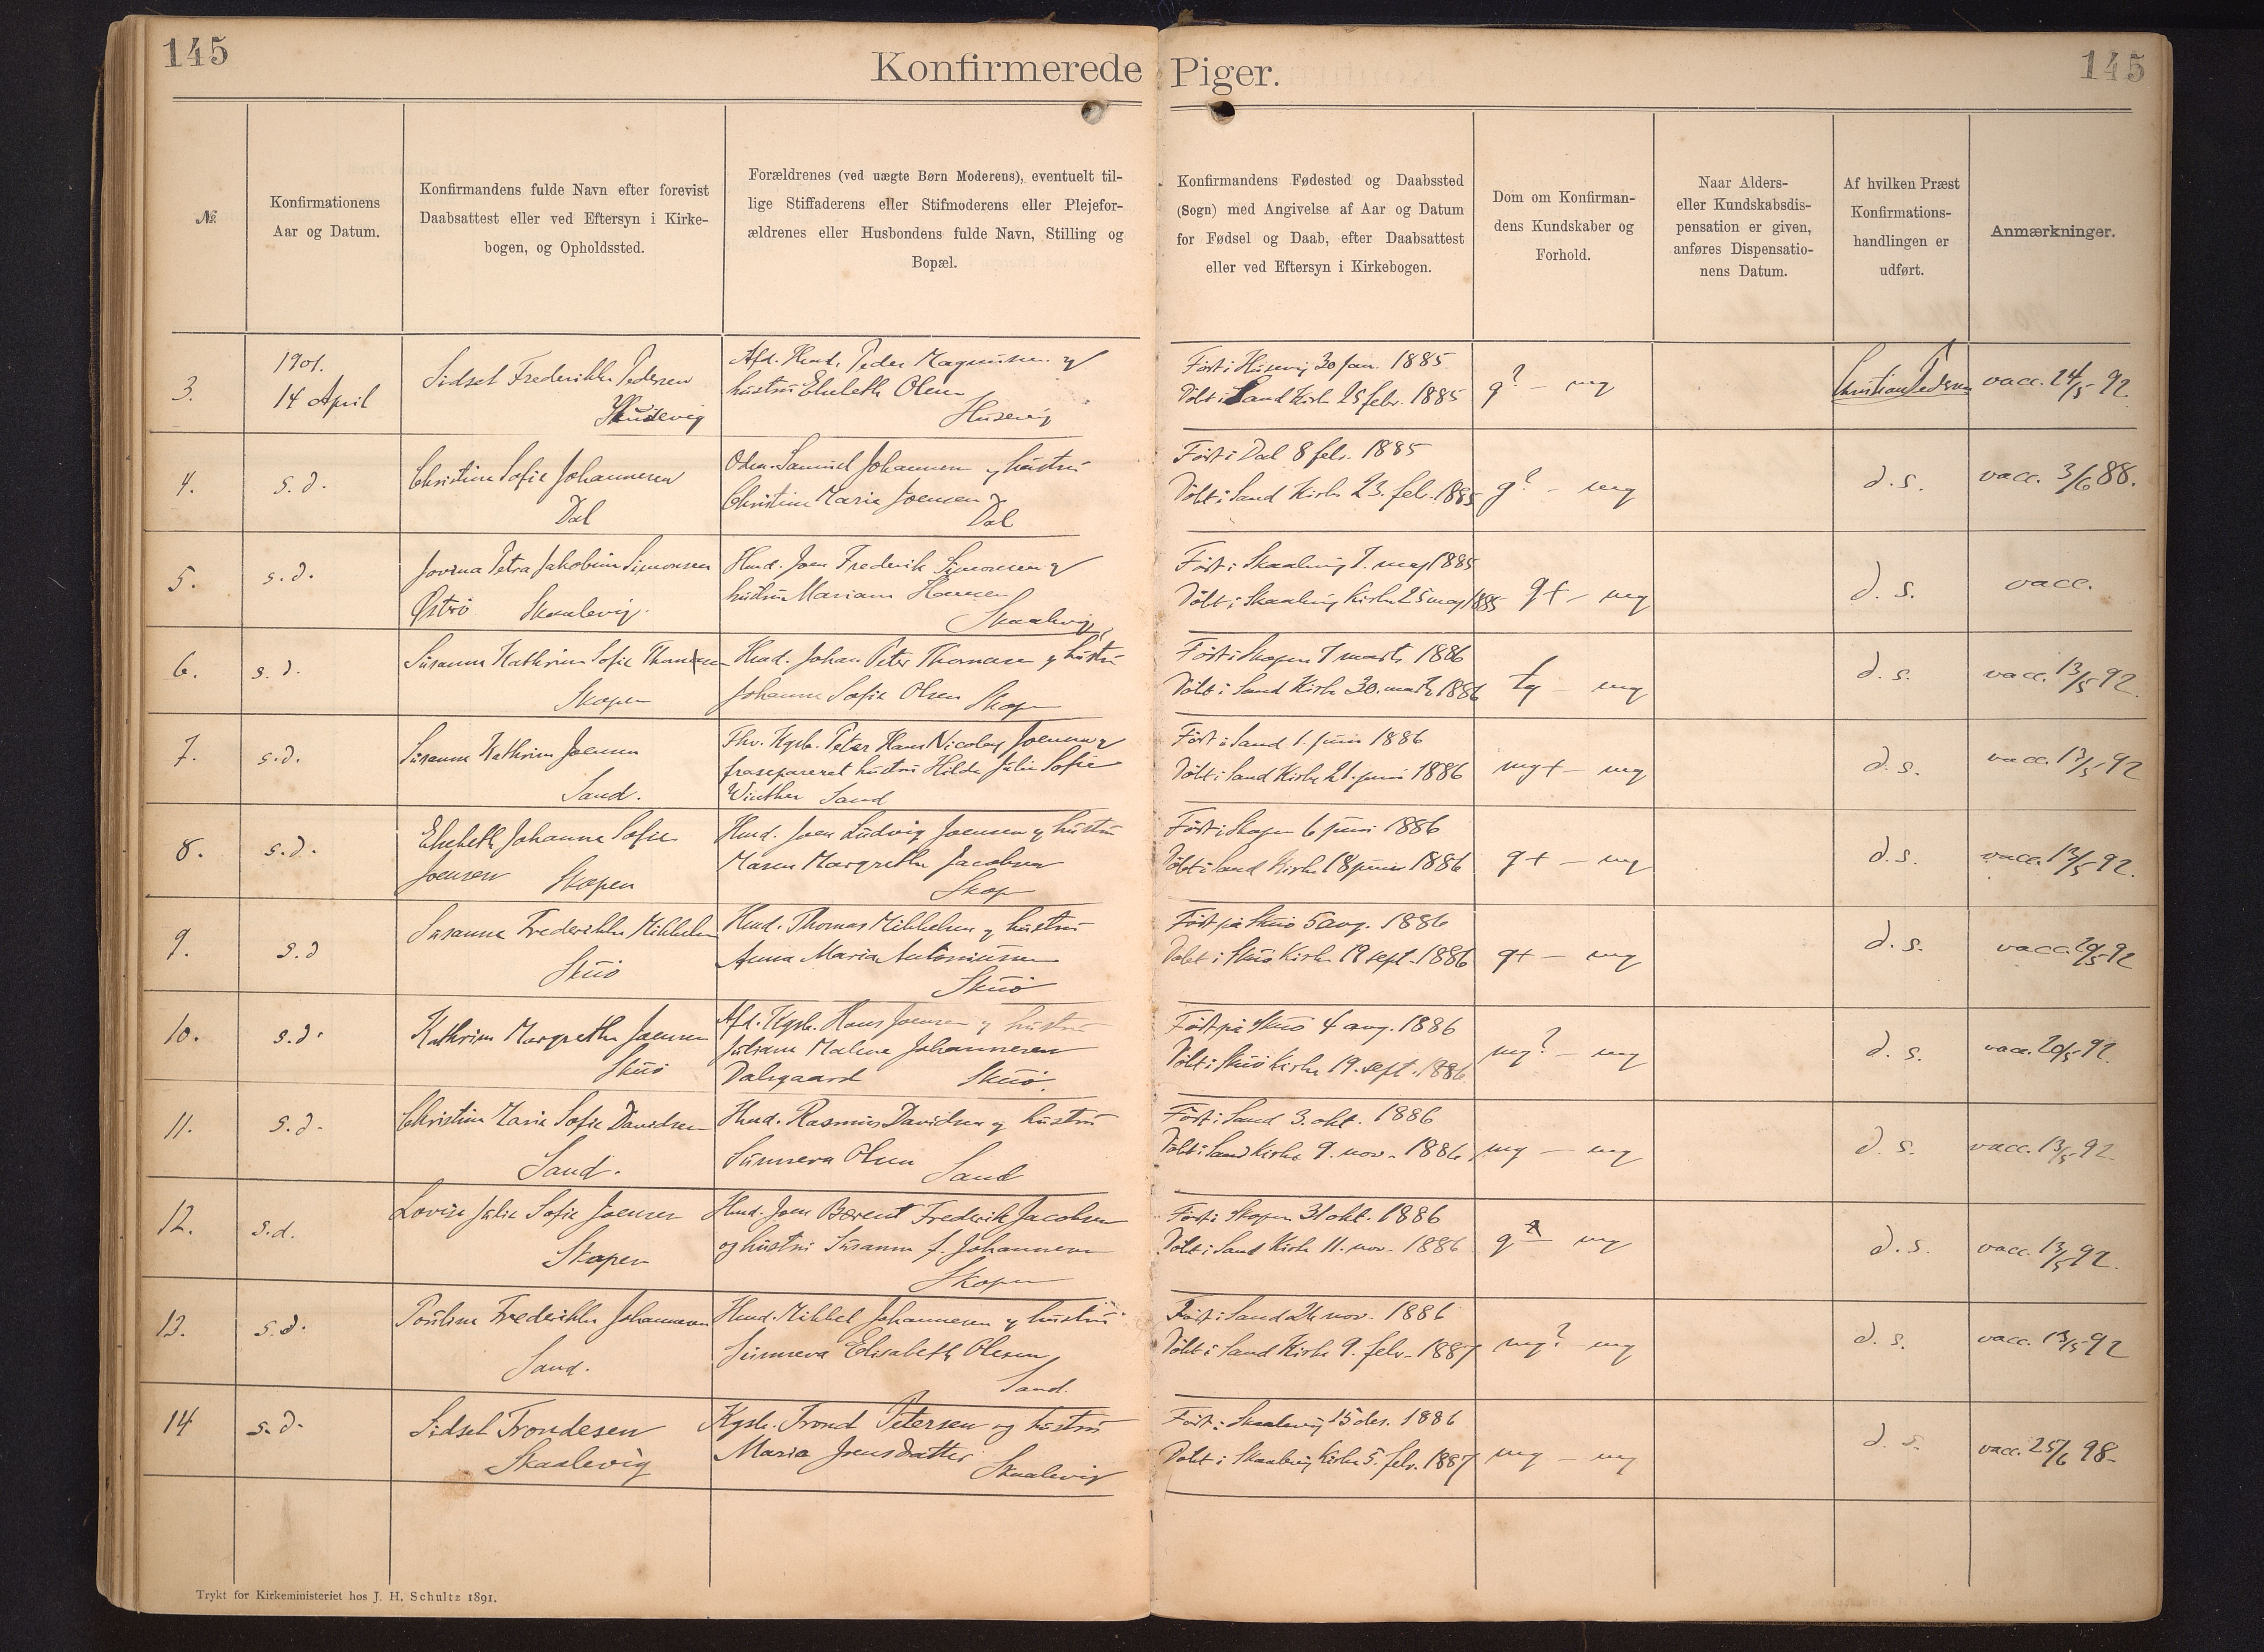 145
Konfirmerede Piger.
145
№.
Konfirmationens
Aar og Datum.
Konfirmandens fulde Navn efter forevist
Daabsattest eller ved Eftersyn i Kirke-
bogen, og Opholdssted.
Forældrenes (ved uægte Børn Moderens), eventuelt til-
lige Stiffaderens eller Stifmoderens eller Plejefor-
ældrenes eller Husbondens fulde Navn, Stilling og
Bopæl.
Konfirmandens Fødested og Daabssted
(Sogn) med Angivelse af Aar og Datum
for Fødsel og Daab, efter Daabsattest
eller ved Eftersyn i Kirkebogen.
Dom om Konfirman-
dens Kundskaber og
Forhold.
Naar Alders-
eller Kundskabsdis-
pensation er given,
anføres Dispensatio-
nens Datum.
Af hvilken Præst
Konfirmations-
handlingen er
udført.
Anmærkninger.
3.
1901.
14 April
Sidsel Frederikke Pedersen
Husevig
Afd. Hmd. Peder Magnussen og
hustru Elsebeth Olsen
Husevig
Født i Husevig 30 Jan. 1885
Døbt i Sand Kirke 25 febr. 1885
g? - mg
Christian Pedersen
vacc. 24/5 92.
4.
s. d.
Christine Sofie Johannesen
Dal
Samuel Johannesen og hustru
Christine Marie Joensen
Dal
Født i Dal 8 feb. 1885
Døbt i Sand Kirke 23. feb. 1885
g? - mg
d. s.
vacc. 3/6 88.
5.
s. d.
Jovina Petra Jakobine Simonsen
Østrø Skaalevig.
Hmd. Joen Frederik Simonsen og
hustru Mariane Hansen
Skaalevig
Født i Skaalevig 7. maj 1885
Døbt i Skaalevig Kirke 25 maj 1885
g+ - mg
d. s.
vacc.
6.
s. d.
Susanne Kathrine Sofie Thomasen
Skopen
Hmd. Johan Peter Thomasen og hustru
Johanne Sofie Olsen Skopen
Født i Skopen 7 marts 1886
Døbt i Sand Kirke 30. marts 1886
tg - mg
d. s.
vacc. 13/5 92.
7.
s. d.
Susanne Kathrine Joensen
Sand.
Fhv. Kgsb. Peter Hans Nicolaj Joensen og
frasepareret hustru Hilda Julie Sofie
Winther Sand
Født i Sand 1. juni 1886
Døbt i Sand Kirke 21. juni 1886
mg+ - mg
d. s.
vacc. 13/5 92
8.
s. d.
Elsebeth Johanne Sofie
Joensen Skopen
Hmd. Joen Ludvig Joensen og hustru
Maren Margrethe Jacobsen
Skop
Født i Skopen 6 juni 1886
Døbt i Sand Kirke 18 juni 1886
g+ - mg
d. s.
vacc. 13/5 92.
9.
s. d
Susanne Frederikke Mikkelsen
Skuø
Hmd. Thomas Mikkelsen og hustru
Anna Maria Antoniussen
Skuø
Født på Skuø 5 avg. 1886
Døbt i Skuø Kirke 19 sept. 1886
g+ - mg
d. s.
vacc. 20/5 92
10.
s. d.
Kathrine Margrethe Joensen
Skuø
Afd. Kgsb. Hans Joensen og hustru
Juliane Malene Johannesen
Dalsgaard Skuø.
Født på Skuø 4 avg. 1886
Døbt i Skuø kirke 19. sept. 1886
mg? - mg
d. s.
vacc. 20/5 92.
11.
s. d.
Christine Marie Sofie Davidsen
Sand.
Hmd. Rasmus Davidsen og hustru
Sunneva Olsen Sand
Født i Sand 3. okt. 1886
Døbt i Sand Kirke 9. nov. 1886
mg - mg
d. s.
vacc. 13/5 92.
12.
s. d.
Lovise Julie Sofie Joensen
Skopen
Hmd. Joen Berent Frederik Jacobsen
og hustru Susanne f. Johannesen
Skopen
Født i Skopen 31 okt. 1886
Døbt i Sand Kirke 11. nov. 1886
g - mg
d. s.
vacc. 13/5 92.
13.
s. d.
Pouline Frederikke Johannesen
Sand.
Hmd. Mikkel Johannesen og hustru
Sunneva Elisabeth Olesen
Sand.
Født i Sand 24 nov. 1886
Døbt i Sand Kirke 9. febr. 1887
mg? - mg
d. s.
vacc. 13/5 92
14
s. d.
Sidsel Trondesen
Skaalevig
Kgsb. Trond Petersen og hustru
Maria Jensdatter Skaalevig
Født i Skaalevig 15 des. 1886
Døbt i Skaalevig Kirke 5. febr. 1887
mg - mg
d. s.
vacc. 25/6 98.
Trykt for Kirkeministeriet hos J. H. Schultz 1891.